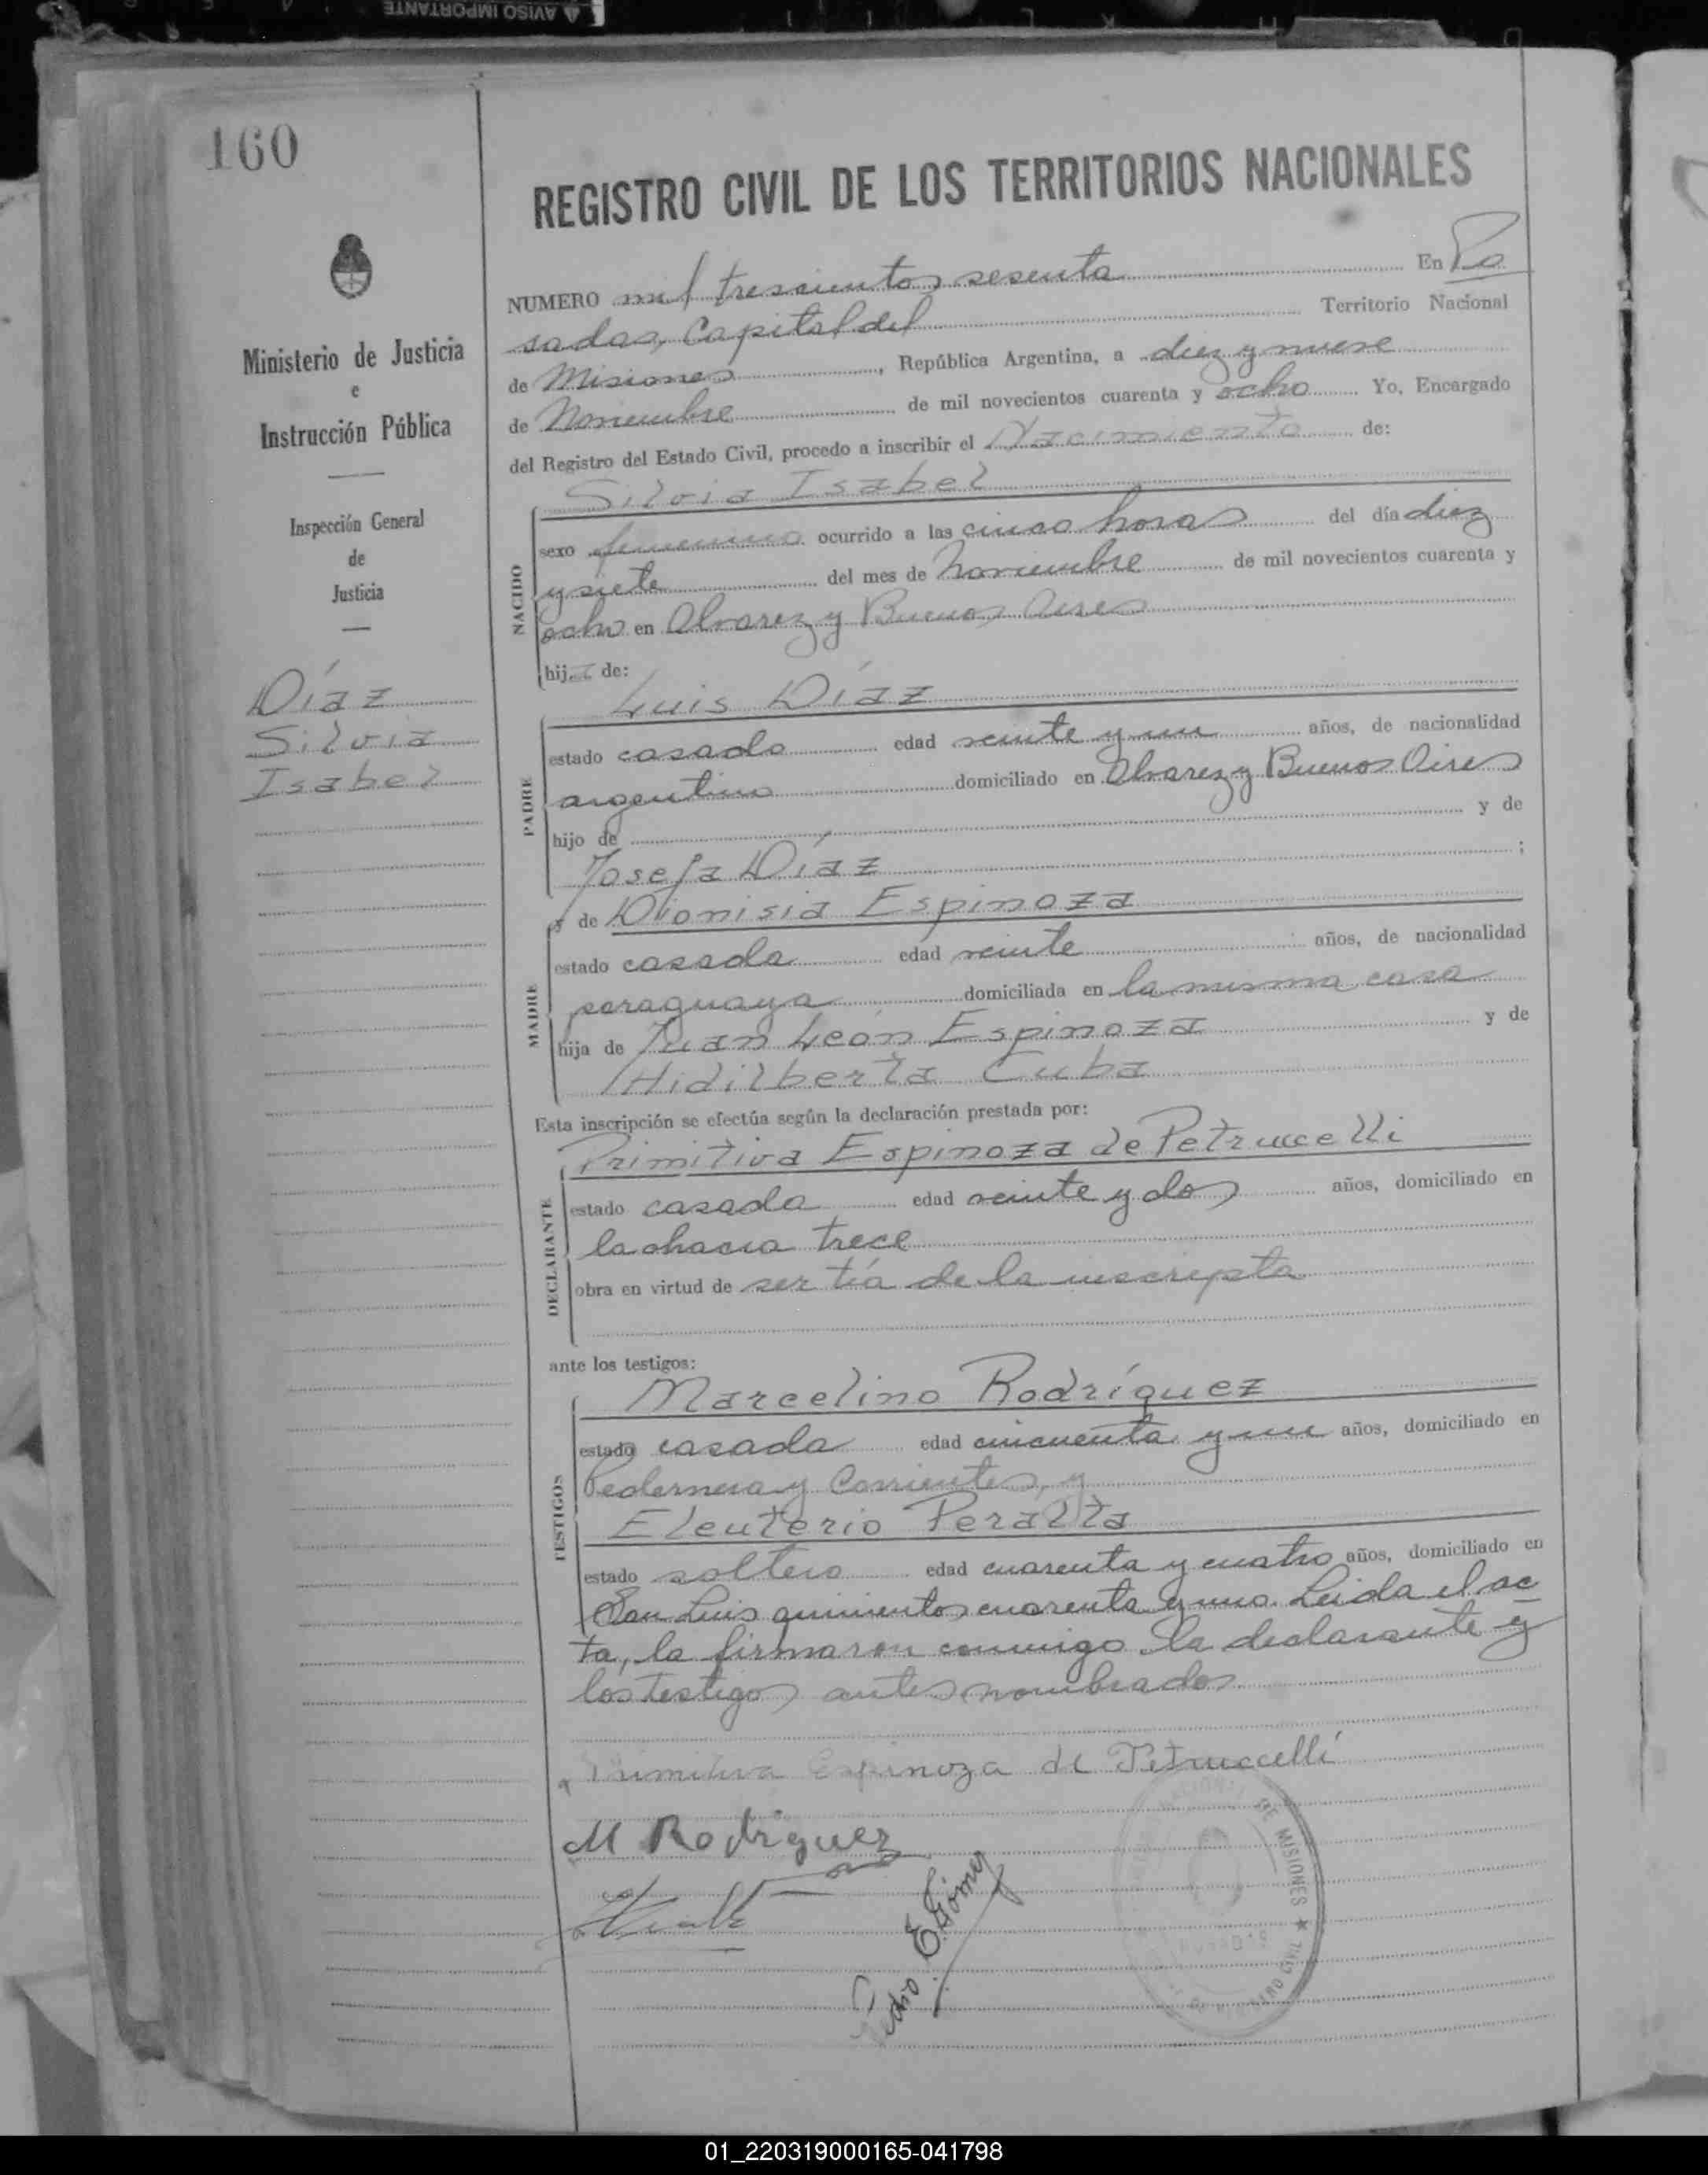 AVISO IMPORTANTE
160
REGISTRO CIVIL DE LOS TERRITORIOS NACIONALES
Ministerio de Justicia
e
Instrucción Pública
Inspección General
de
Justicia
Díaz
Silvia
Isabel
NUMERO mil trescientos sesenta En Po
sadas, Capital del Territorio Nacional
de Misiones, República Argentina, a diez y nueve
de Noviembre de mil novecientos cuarenta y ocho Yo, Encargado
del Registro del Estado Civil, procedo a inscribir el Nacimiento de:
Silvia Isabel
NACIDO
sexo femenino ocurrido a las cinco horas del día diez
y siete del mes de noviembre de mil novecientos cuarenta y
ocho en Alvarez y Buenos Aires
hija de:
Luis Díaz
PADRE
estado casado edad veinte y un años, de nacionalidad
argentino domiciliado en Alvarez y Buenos Aires
hijo de y de
Josefa Díaz ;
y de Dionisia Espinoza
MADRE
estado casada edad veinte años, de nacionalidad
paraguaya domiciliada en la misma casa
hija de Juan León Espinoza y de
Hidilberta Cuba
Esta inscripción se efectúa según la declaración prestada por:
Primitiva Espinoza de Petruccelli
DECLARANTE
estado casada edad veinte y dos años, domiciliado en
la chacra trece
obra en virtud de ser tía de la inscripta
ante los testigos:
Marcelino Rodríguez
TESTIGOS
estado casado edad cincuenta y un años, domiciliado en
Pedernera y Corrientes, y
Eleuterio Peralta
estado soltero edad cuarenta y cuatro años, domiciliado en
San Luis quinientos cuarenta y uno. Leida el ac
ta, la firmaron conmigo la declarante y
los testigos antes nombrados
Primitiva Espinoza de Petruccelli
M Rodriguez
Pedro E. Gómez
DE MISIONES ★
01_220319000165-041798